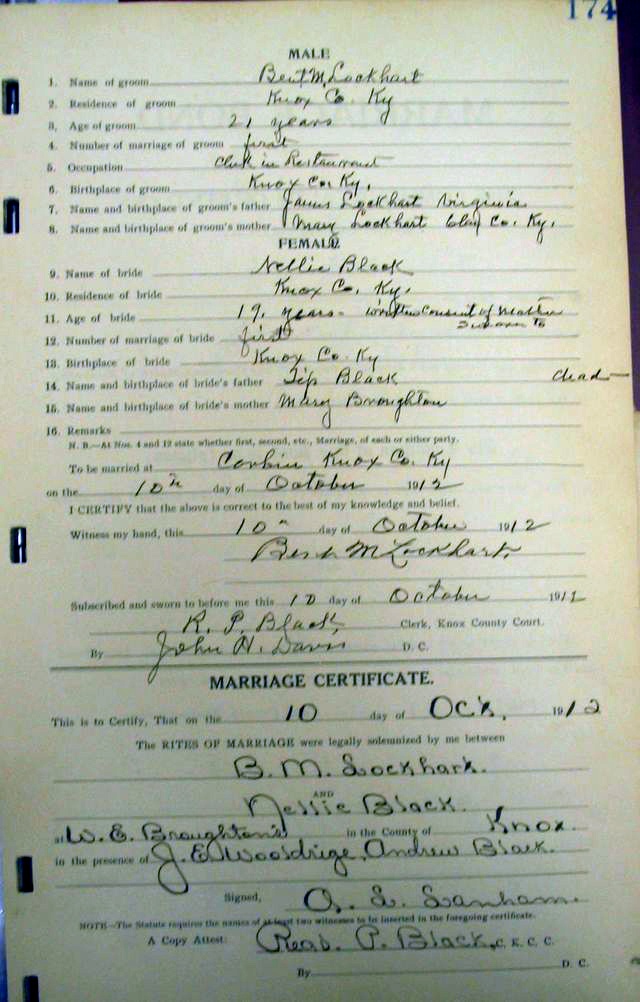 174
MALE
1. Name of groom Bert M. Lockhart
2. Residence of groom Knox Co. Ky
3. Age of groom 21 years
4. Number of marriage of groom first
5. Occupation Clerk in Restaurant
6. Birthplace of groom Knox Co. Ky.
7. Name and birthplace of groom's father James Lockhart Virginia
8. Name and birthplace of groom's mother Mary Lockhart Clay Co. Ky.
FEMALE
9. Name of bride Nellie Black
10. Residence of bride Knox Co. Ky.
11. Age of bride 19 years - written consent of mother
sworn to
12. Number of marriage of bride first
13. Birthplace of bride Knox Co. Ky
14. Name and birthplace of bride's father Tip Black dead
15. Name and birthplace of bride's mother Mary Broughton
16. Remarks
N. B.—At Nos. 4 and 12 state whether first, second, etc., Marriage, of each or either party.
To be married at Corbin Knox Co. Ky
on the 10th day of October 1912
I CERTIFY that the above is correct to the best of my knowledge and belief.
Witness my hand, this 10" day of October 1912
Bert M Lockhart.
Subscribed and sworn to before me this 10 day of October 1912
R. P. Black, Clerk, Knox County Court.
By John H. Davis D. C.
MARRIAGE CERTIFICATE.
This is to Certify, That on the 10 day of Oct, 1912
The RITES OF MARRIAGE were legally solemnized by me between
B. M. Lockhart.
AND
Nellie Black.
at W. E. Broughton's in the County of Knox.
in the presence of J. E. Wooldrige, Andrew Black.
Signed, A. L. Lanham
NOTE—The Statute requires the names of at least two witnesses to be inserted in the foregoing certificate.
A Copy Attest: Read. P. Black, C. K. C. C.
By D. C.